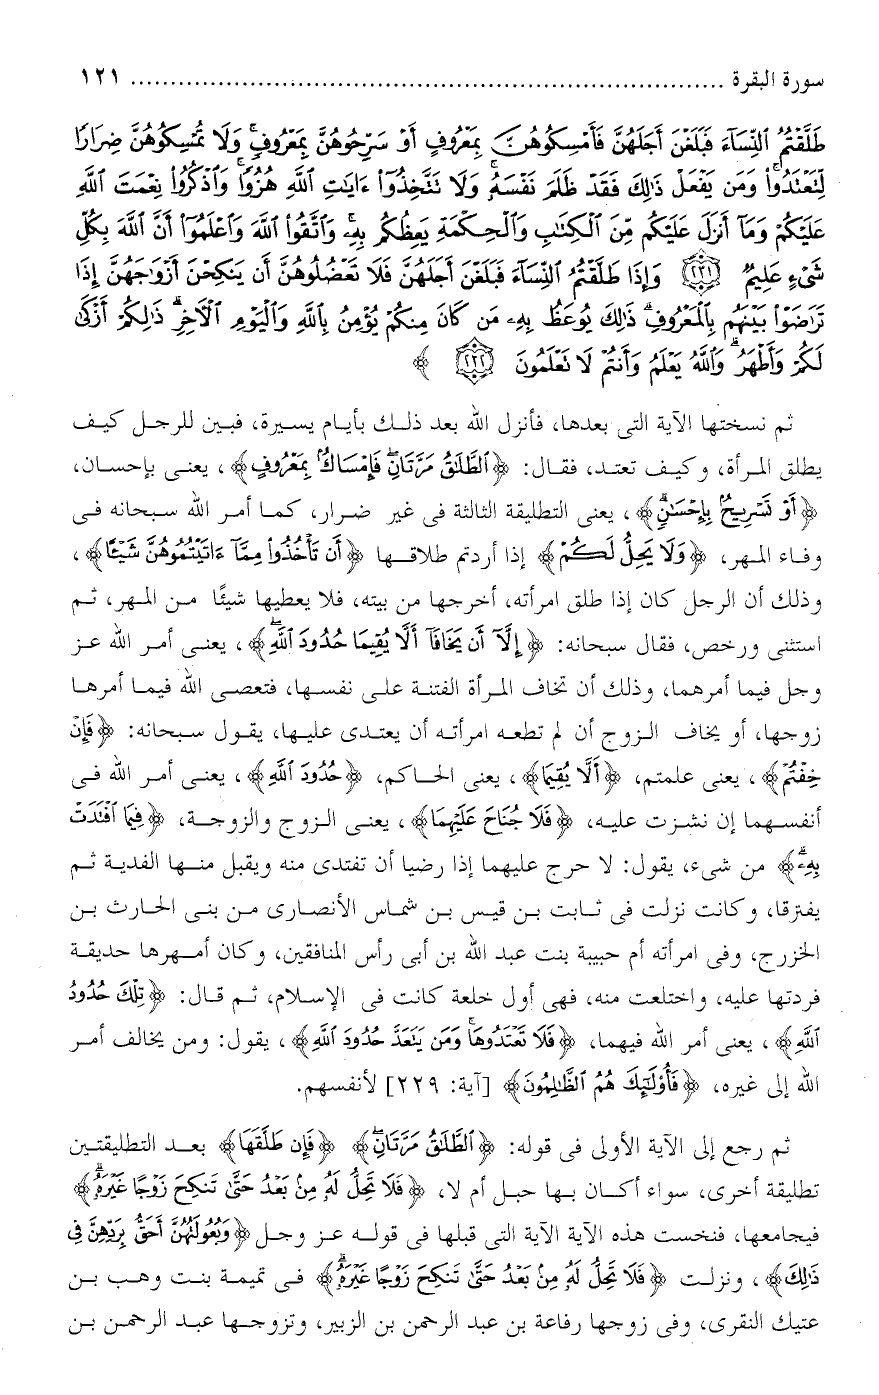 سورة البقرة ........................................................................... ١٢١
طَلَّقْتُمُ ٱلنِّسَآءَ فَبَلَغْنَ أَجَلَهُنَّ فَأَمْسِكُوهُنَّ بِمَعْرُوفٍ أَوْ سَرِّحُوهُنَّ بِمَعْرُوفٍ ۚ وَلَا تُمْسِكُوهُنَّ ضِرَارًا
لِّتَعْتَدُوا۟ ۚ وَمَن يَفْعَلْ ذَٰلِكَ فَقَدْ ظَلَمَ نَفْسَهُۥ ۚ وَلَا تَتَّخِذُوٓا۟ ءَايَٰتِ ٱللَّهِ هُزُوًا ۚ وَٱذْكُرُوا۟ نِعْمَتَ ٱللَّهِ
عَلَيْكُمْ وَمَآ أَنزَلَ عَلَيْكُم مِّنَ ٱلْكِتَٰبِ وَٱلْحِكْمَةِ يَعِظُكُم بِهِۦ ۚ وَٱتَّقُوا۟ ٱللَّهَ وَٱعْلَمُوٓا۟ أَنَّ ٱللَّهَ بِكُلِّ
شَىْءٍ عَلِيمٌ ﴿٢٣١﴾ وَإِذَا طَلَّقْتُمُ ٱلنِّسَآءَ فَبَلَغْنَ أَجَلَهُنَّ فَلَا تَعْضُلُوهُنَّ أَن يَنكِحْنَ أَزْوَٰجَهُنَّ إِذَا
تَرَٰضَوْا۟ بَيْنَهُم بِٱلْمَعْرُوفِ ۗ ذَٰلِكَ يُوعَظُ بِهِۦ مَن كَانَ مِنكُمْ يُؤْمِنُ بِٱللَّهِ وَٱلْيَوْمِ ٱلْءَاخِرِ ۗ ذَٰلِكُمْ أَزْكَىٰ
لَكُمْ وَأَطْهَرُ ۗ وَٱللَّهُ يَعْلَمُ وَأَنتُمْ لَا تَعْلَمُونَ ﴿٢٣٢﴾ ﴾
ثم نسختها الآية التى بعدها، فأنزل الله بعد ذلك بأيام يسيرة، فبين للرجل كيف
يطلق المرأة، وكيف تعتد، فقال: ﴿ٱلطَّلَٰقُ مَرَّتَانِ ۖ فَإِمْسَاكٌۢ بِمَعْرُوفٍ﴾، يعنى بإحسان،
﴿أَوْ تَسْرِيحٌۢ بِإِحْسَٰنٍ ۗ﴾، يعنى التطليقة الثالثة فى غير ضرار، كما أمر الله سبحانه فى
وفاء المهر، ﴿وَلَا يَحِلُّ لَكُمْ﴾ إذا أردتم طلاقها ﴿أَن تَأْخُذُوا۟ مِمَّآ ءَاتَيْتُمُوهُنَّ شَيْـًٔا﴾،
وذلك أن الرجل كان إذا طلق امرأته، أخرجها من بيته، فلا يعطيها شيئًا من المهر، ثم
استثنى ورخص، فقال سبحانه: ﴿إِلَّآ أَن يَخَافَآ أَلَّا يُقِيمَا حُدُودَ ٱللَّهِ ۖ﴾، يعنى أمر الله عز
وجل فيما أمرهما، وذلك أن تخاف المرأة الفتنة على نفسها، فتعصى الله فيما أمرها
زوجها، أو يخاف الزوج أن لم تطعه امرأته أن يعتدى عليها، يقول سبحانه: ﴿فَإِنْ
خِفْتُمْ﴾، يعنى علمتم، ﴿أَلَّا يُقِيمَا﴾، يعنى الحاكم، ﴿حُدُودَ ٱللَّهِ﴾، يعنى أمر الله فى
أنفسهما إن نشزت عليه، ﴿فَلَا جُنَاحَ عَلَيْهِمَا﴾، يعنى الزوج والزوجة، ﴿فِيمَا ٱفْتَدَتْ
بِهِۦ ۗ﴾ من شىء، يقول: لا حرج عليهما إذا رضيا أن تفتدى منه ويقبل منها الفدية ثم
يفترقا، وكانت نزلت فى ثابت بن قيس بن شماس الأنصارى من بنى الحارث بن
الخزرج، وفى امرأته أم حبيبة بنت عبد الله بن أبى رأس المنافقين، وكان أمهرها حديقة
فردتها عليه، واختلعت منه، فهى أول خلعة كانت فى الإسلام، ثم قال: ﴿تِلْكَ حُدُودُ
ٱللَّهِ﴾، يعنى أمر الله فيهما، ﴿فَلَا تَعْتَدُوهَا ۚ وَمَن يَتَعَدَّ حُدُودَ ٱللَّهِ﴾، يقول: ومن يخالف أمر
الله إلى غيره، ﴿فَأُو۟لَٰٓئِكَ هُمُ ٱلظَّٰلِمُونَ﴾ [آية: ٢٢٩] لأنفسهم.
ثم رجع إلى الآية الأولى فى قوله: ﴿ٱلطَّلَٰقُ مَرَّتَانِ ۖ﴾ ﴿فَإِن طَلَّقَهَا﴾ بعد التطليقتين
تطليقة أخرى، سواء أكان بها حبل أم لا، ﴿فَلَا تَحِلُّ لَهُۥ مِنۢ بَعْدُ حَتَّىٰ تَنكِحَ زَوْجًا غَيْرَهُۥ ۗ﴾
فيجامعها، فنخست هذه الآية الآية التى قبلها فى قوله عز وجل ﴿وَبُعُولَتُهُنَّ أَحَقُّ بِرَدِّهِنَّ فِى
ذَٰلِكَ﴾، ونزلت ﴿فَلَا تَحِلُّ لَهُۥ مِنۢ بَعْدُ حَتَّىٰ تَنكِحَ زَوْجًا غَيْرَهُۥ ۗ﴾ فى تميمة بنت وهب بن
عتيك النقرى، وفى زوجها رفاعة بن عبد الرحمن بن الزبير، وتزوجها عبد الرحمن بن